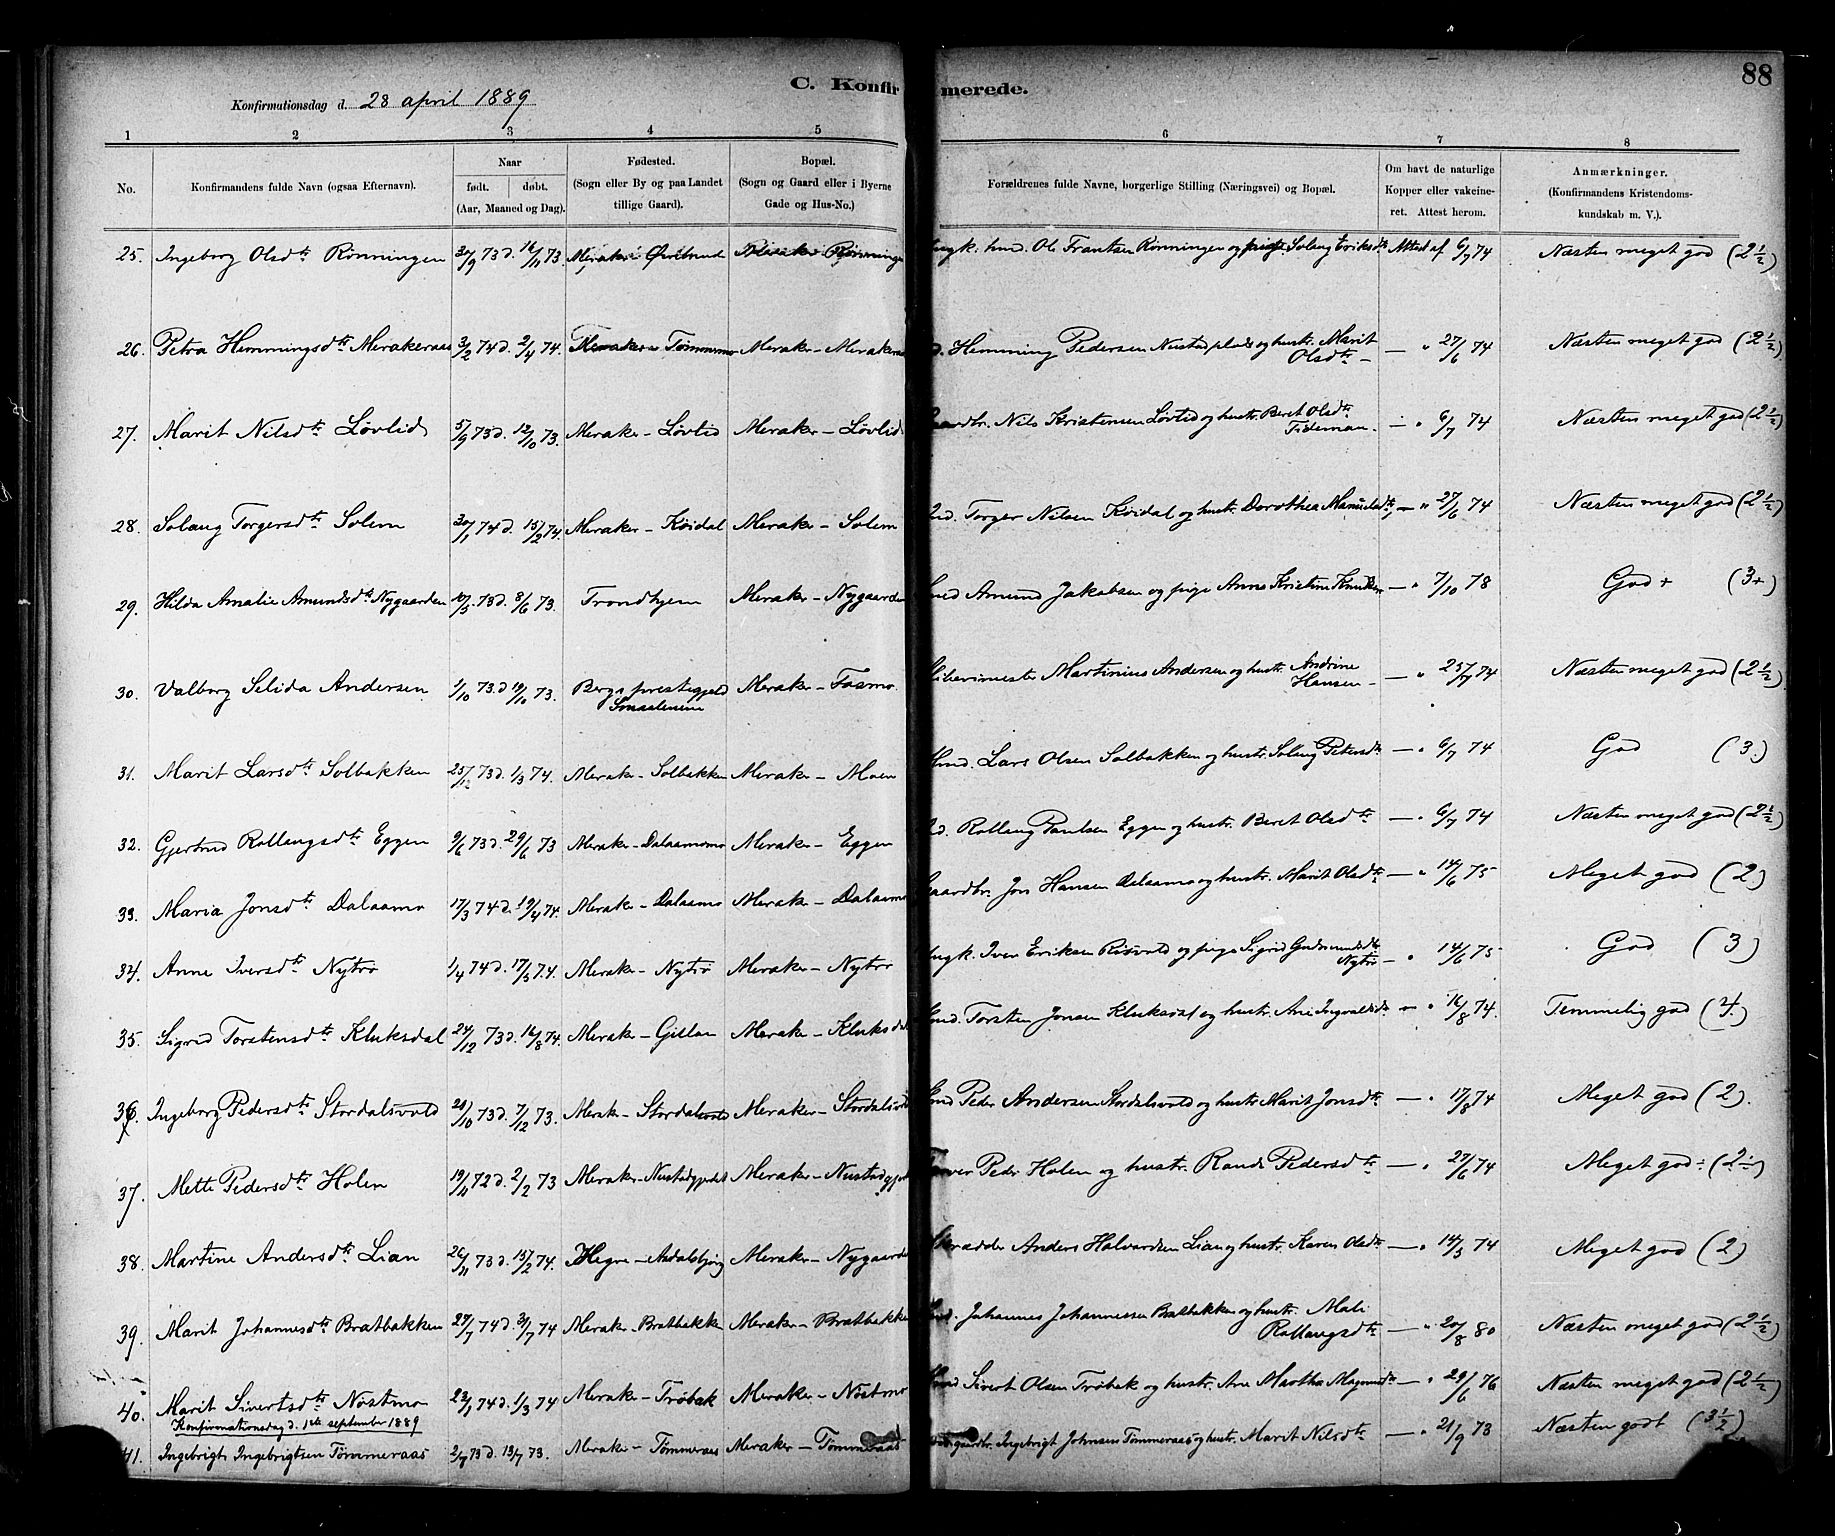 88
C. Konfirmerede.
Konfirmationsdag d. 28 april 1889
1 2 3 4 5 6 7 8
No. Konfirmandens fulde Navn (ogsaa Efternavn). Naar født. døbt. (Aar, Maaned og Dag). Fødested. (Sogn eller By og paa Landet tillige Gaard). Bopæl. (Sogn og Gaard eller i Byerne Gade og Hus-No.) Forældrenes fulde Navne, borgerlige Stilling (Næringsvei) og Bopæl. Om havt de naturlige Kopper eller vakcineret. Attest herom. Anmærkninger. (Konfirmandens Kristendomskundskab m. V.).
25. Ingeborg Olsdtr Rønningen 30/9 73 d. 16/11 73. Meraker Meraker Rønningen Ungk. Ol. Frantsen Rønningen og pige Solaug Eriksdtr Attest af 6/7 74 Næsten meget god (2 1/2)
26. Petra Hemmingsdtr Merakeraas 3/2 74 d. 2/4 74. Meraker - Tømmermo Meraker - Merakeraas Hemming Pedersen Nustadplads og hustr. Marit Olsdtr — " 27/6 74 Næsten meget god (2 1/2)
27. Marit Nilsdtr Løvlid 5/9 73 d. 12/10 73. Meraker - Løvlid Meraker - Løvlid Gaardbr. Nils Kristensen Løvlid og hustr. Beret Olsdtr Tideman — " 6/7 74 Næsten meget god (2 1/2)
28. Solaug Torgersdtr Solem 30/1 74 d. 15/2 74. Meraker - Koidal Meraker - Solem Ind. Torger Nilsen Koidal og hustr. Dorothea — " 27/6 74 Næsten meget god (2 1/2)
29. Hilda Amalie Amundsdtr Nygaarden 10/5 73 d. 8/6 73. Trondhjem Meraker - Nygaarden Amund Jakobsen og pige Anne Kristine Knudsen — " 7/10 78 God + (3+)
30. Valborg Selida Andersen 1/10 73 d. 19/10 73. Bergs prestegjeld Smaalenene Meraker - Fasmo Martinius Andersen og hustr. Andrine Hansen — " 25/7 74 Næsten meget god (2 1/2)
31. Marit Larsdtr Solbakken 25/12 73 d. 1/3 74. Meraker - Solbakken Meraker - Moen Ind. Lars Olsen Solbakken og hustr. Solaug Petersdtr — " 6/7 74 God (3)
32. Gjertrud Rollaugsdtr Eggen 9/6 73 d. 29/6 73 Meraker - Dalaamomo Meraker - Eggen Ind. Rollaug Paulsen Eggen og hustr. Beret Olsdtr — " 6/7 74 Næsten meget god (2 1/2)
33. Maria Jonsdtr Dalaamo 17/3 74 d. 19/4 74. Meraker - Dalaamo Meraker - Dalaamo Gaardbr. Jon Hansen Dalaamo og hustr. Marit Olsdtr — " 14/6 75 Meget god (2)
34. Anne Iversdtr Nytrø 1/4 74 d. 17/5 74. Meraker - Nytrø Meraker - Nytrø Ungk. Iver Eriksen Risvold og pige Sigrid Gudmundsdtr Nytrø — " 14/6 75 God (3)
35. Sigrid Torstensdtr Kluksdal 24/12 73 d. 16/8 74. Meraker - Gillan Meraker - Kluksdal Ind. Torsten Jonsen Kluksdal og hustr. Ane Ingvaldsdtr — " 16/8 74. Temmelig god (4)
36. Ingeborg Pedersdtr Stordalsvold 20/10 73 d. 7/12 73. Merak - Stordalsvold Meraker - Stordalsvold Ind Peder Andersen Stordalsvold og hustr Marit Jonsdtr — " 17/8 74 Meget god (2).
37. Mette Pedersdtr Holen 19/11 72 d. 2/2 73 Meraker - Nustadgjerdet Meraker - Nustadgjerdet Peder Holen og hustr. Randi Pedersdtr — " 27/6 74 Meget god ÷ (2 ÷)
38. Martine Andersdtr Lian 26/11 73 d. 15/2 74. Hegre - Meraker - Nygaarden Skrædder Anders Halvardsen Lian og hustr. Karen Olsdtr — " 14/5 74 Meget god (2)
39. Marit Johannesdtr Bratbakken 27/7 74 d. 31/7 74 Meraker - Bratbakken Meraker - Bratbakken Ind. Johannes Johannessen Bratbakken og hustr. Mali Rollaugsdtr — " 20/8 80 Næsten meget god (2 1/2)
40. Marit Sivertsdtr Nøstmo 23/1 74 d. 1/3 74 Meraker - Trøbak Meraker - Nøstmo Ind Sivert Olsen Trøbak og hustr. Ane Martha — " 29/6 76 Næsten meget god (2 1/2)
Konfirmationsdag d. 1ste september 1889
41. Ingebrigt Ingebrigtsen Tømmeraas 2/7 73 d. 13/7 73. Meraker - Tømmeraas Meraker - Tømmeraas Ingebrigt Johnsen Tømmeraas og hustr. Marit Nilsdtr — " 21/9 73 Næsten godt (3 1/2)